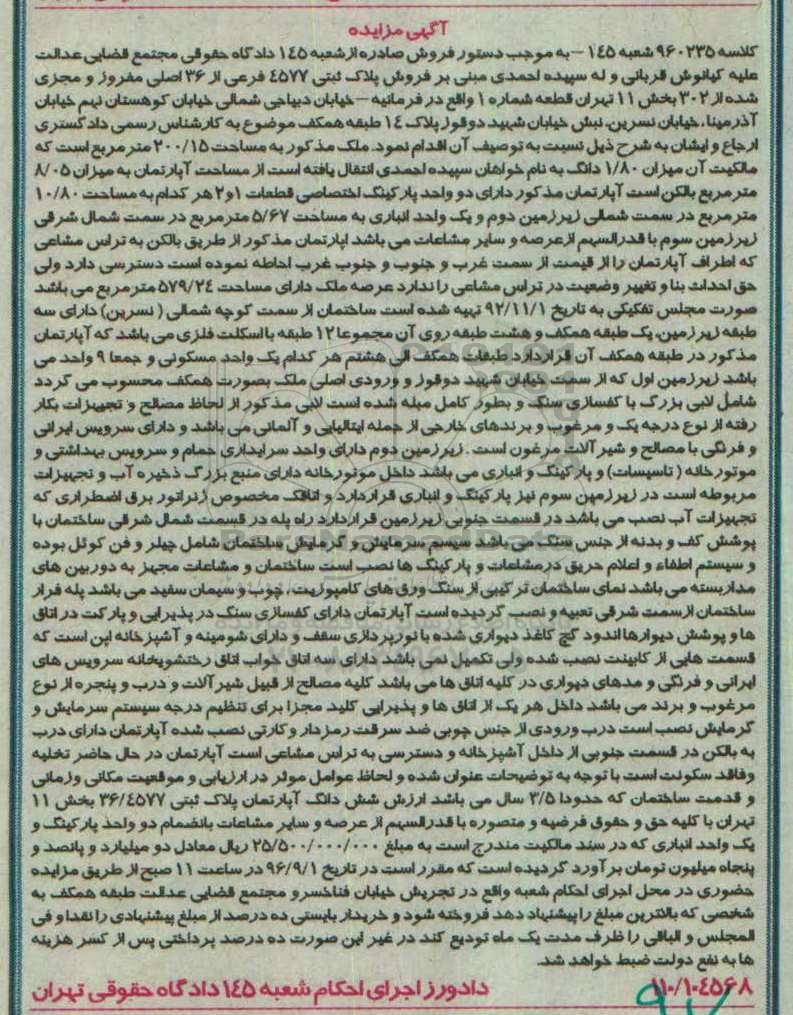 آگهی مزایده
کلاسه ۹۶۰۲۳۵ شعبه ۱٤۵ – به موجب دستور فروش صادره ازشعبه ۱٤۵ دادگاه حقوقی مجتمع قضایی عدالت
علیه کیانوش قربانی و له سپیده احمدی مبنی بر فروش پلاک ثبتی ٤۵۷۷ فرعی از ۳۶ اصلی مفروز و مجزی
شده از ۳۰۲ بخش ۱۱ تهران قطعه شماره ۱ واقع در فرمانیه – خیابان دیباجی شمالی خیابان کوهستان نهم خیابان
آذرمینا، خیابان نسرین، نبش خیابان شهید دوقوز پلاک ۱٤ طبقه همکف موضوع به کارشناس رسمی دادگستری
ارجاع و ایشان به شرح ذیل نسبت به توصیف آن اقدام نمود. ملک مذکور به مساحت ۲۰۰/۱۵ متر مربع است که
مالکیت آن میزان ۱/۸۰ دانگ به نام خواهان سپیده احمدی انتقال یافته است از مساحت آپارتمان به میزان ۸/۰۵
متر مربع بالکن است آپارتمان مذکور دارای دو واحد پارکینگ اختصاصی قطعات ۱و۲ هر کدام به مساحت ۱۰/۸۰
متر مربع در سمت شمالی زیرزمین دوم و یک واحد انباری به مساحت ۵/۶۷ مترمربع در سمت شمال شرقی
زیرزمین سوم با قدرالسهم ازعرصه و سایر مشاعات می باشد اپارتمان مذکور از طریق بالکن به تراس مشاعی
که اطراف آپارتمان را از قیمت از سمت غرب و جنوب و جنوب غرب احاطه نموده است دسترسی دارد ولی
حق احداث بنا و تغییر وضعیت در تراس مشاعی را ندارد عرصه ملک دارای مساحت ۵۷۹/۲٤ مترمربع می باشد
صورت مجلس تفکیکی به تاریخ ۹۲/۱۱/۱ تهیه شده است ساختمان از سمت کوچه شمالی ( نسرین) دارای سه
طبقه زیرزمین، یک طبقه همکف و هشت طبقه روی آن مجموعا ۱۲ طبقه با اسکلت فلزی می باشد که آپارتمان
مذکور در طبقه همکف آن قراردارد طبقات همکف الی هشتم هر کدام یک واحد مسکونی و جمعا ۹ واحد می
باشد زیرزمین اول که از سمت خیابان شهید دوقوز و ورودی اصلی ملک بصورت همکف محسوب می گردد
شامل لابی بزرگ با کفسازی سنگ و بطور کامل مبله شده است لابی مذکور از لحاظ مصالح و تجهیزات بکار
رفته از نوع درجه یک و مرغوب و برندهای خارجی از جمله ایتالیایی و آلمانی می باشد و دارای سرویس ایرانی
و فرنگی با مصالح و شیرآلات مرغون است . زیرزمین دوم دارای واحد سرایداری حمام و سرویس بهداشتی و
موتورخانه ( تاسیسات) و پارکینگ و انباری می باشد داخل موتورخانه دارای منبع بزرگ ذخیره آب و تجهیزات
مربوطه است در زیرزمین سوم نیز پارکینگ و انباری قراردارد و اتاقک مخصوص ژنراتور برق اضطراری که
تجهیزات آب نصب می باشد در قسمت جنوبی زیرزمین قراردارد راه پله در قسمت شمال شرقی ساختمان با
پوشش کف و بدنه از جنس سنگ می باشد سیسم سرمایش و گرمایش ساختمان شامل چیلر و فن کوئل بوده
و سیستم اطفاء و اعلام حریق درمشاعات و پارکینگ ها نصب است ساختمان و مشاعات مجهز به دوربین های
مداربسته می باشد نمای ساختمان ترکیبی از سنگ ورق های کامپوزیت ، چوب و سیمان سفید می باشد پله فرار
ساختمان ازسمت شرقی تعبیه و نصب گردیده است آپارتمان دارای کفسازی سنگ در پذیرایی و پارکت در اتاق
ها و پوشش دیوارها اندود گچ کاغذ دیواری شده با نورپردازی سقف و دارای شومینه و آشپزخانه اپن است که
قسمت هایی از کابینت نصب شده ولی تکمیل نمی باشد دارای سه اتاق خواب اتاق رختشویخانه سرویس های
ایرانی و فرنگی و مدهای دیواری در کلیه اتاق ها می باشد کلیه مصالح از قبیل شیرآلات و درب و پنجره از نوع
مرغوب و برند می باشد داخل هر یک از اتاق ها و پذیرایی کلید مجزا برای تنظیم درجه سیستم سرمایش و
گرمایش نصب است درب ورودی از جنس چوبی ضد سرقت رمزدار و کارتی نصب شده آپارتمان دارای درب
به بالکن در قسمت جنوبی از داخل آشپزخانه و دسترسی به تراس مشاعی است آپارتمان در حال حاضر تخلیه
وفاقد سکونت است با توجه به توضیحات عنوان شده و لحاظ عوامل موثر در ارزیابی و موقعیت مکانی وزمانی
و قدمت ساختمان که حدودا ۳/۵ سال می باشد ارزش شش دانگ آپارتمان پلاک ثبتی ۳۶/٤۵۷۷ بخش ۱۱
تهران با کلیه حق و حقوق فرضیه و متصوره با قدرالسهم از عرصه و سایر مشاعات بانضمام دو واحد پارکینگ و
یک واحد انباری که در سند مالکیت مندرج است به مبلغ ۲۵/۵۰۰/۰۰۰/۰۰۰ ریال معادل دو میلیارد و پانصد و
پنجاه میلیون تومان برآورد گردیده است که مقرر است در تاریخ ۹۶/۹/۱ در ساعت ۱۱ صبح از طریق مزایده
حضوری در محل اجرای احکام شعبه واقع در تجریش خیابان فناخسرو مجتمع قضایی عدالت طبقه همکف به
شخصی که بالاترین مبلغ را پیشنهاد دهد فروخته شود و خریدار بایستی ده درصد از مبلغ پیشنهادی را نقدا و فی
المجلس و الباقی را ظرف مدت یک ماه تودیع کند در غیر این صورت ده درصد پرداختی پس از کسر هزینه
ها به نفع دولت ضبط خواهد شد.
۱۱۰/۱۰٤۵۶۸ دادورز اجرای احکام شعبه ۱٤۵ دادگاه حقوقی تهران